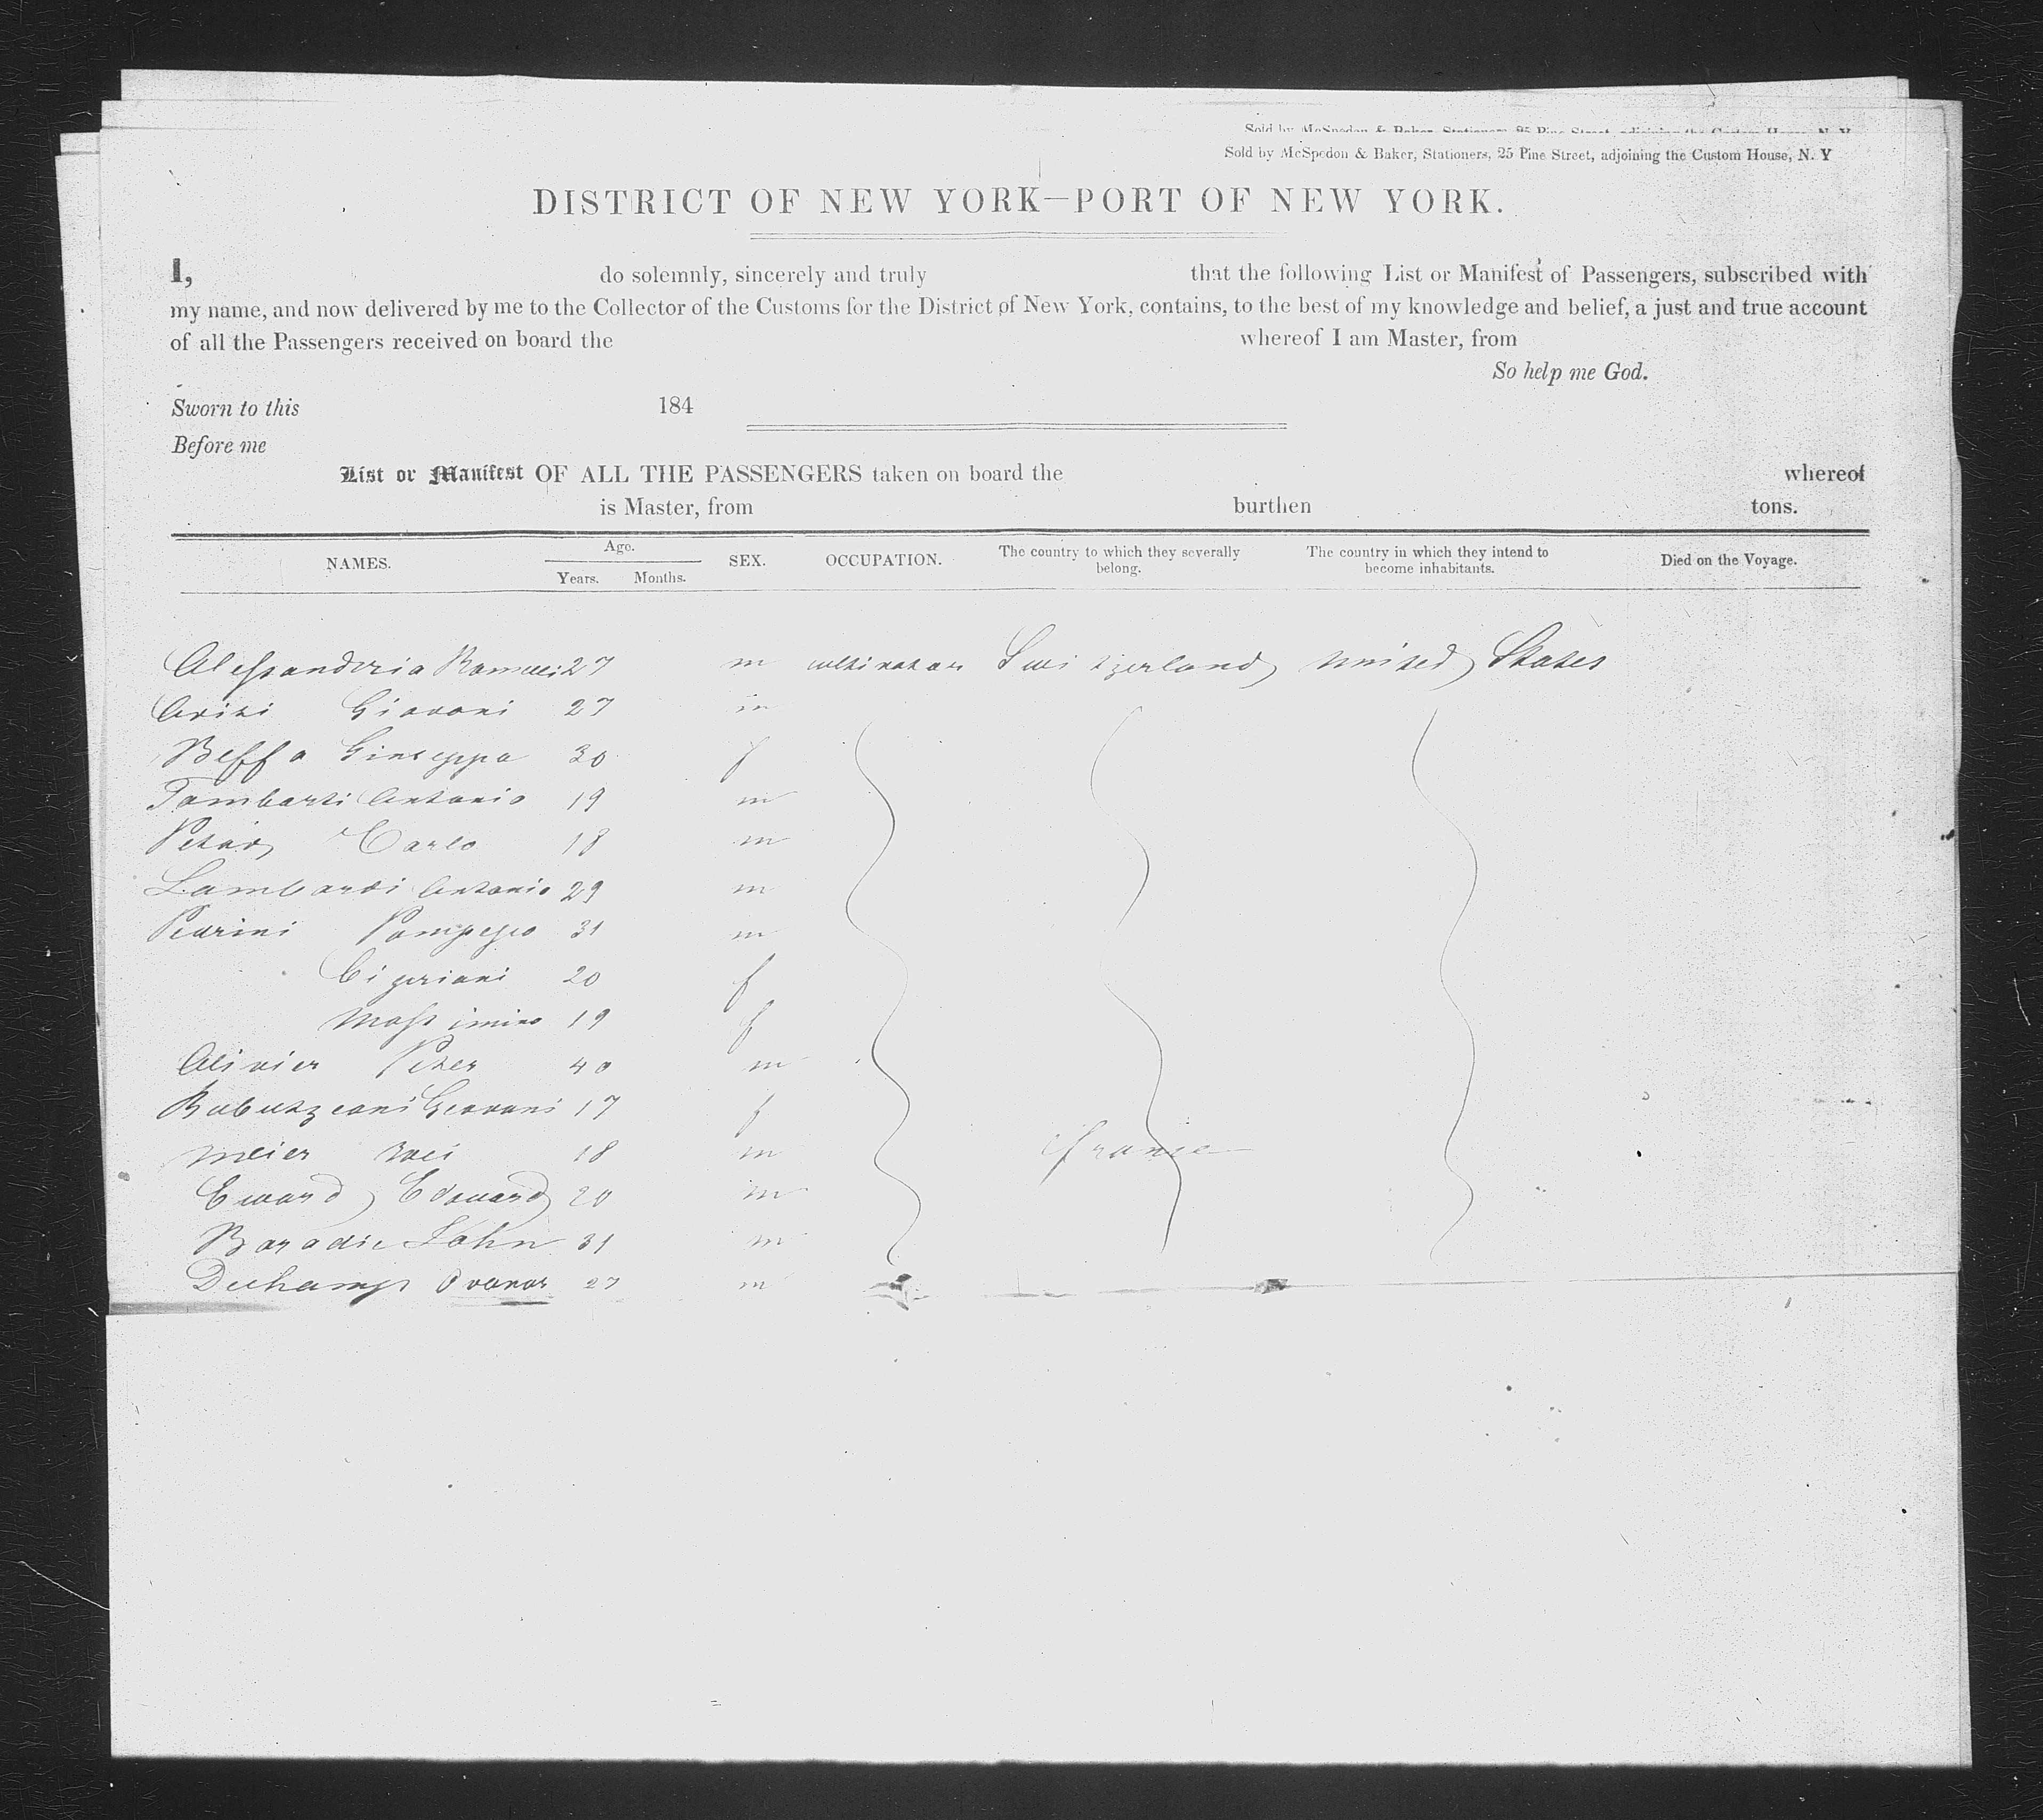 Sold by McSpedon & Baker, Stationers, 25 Pine Street, adjoining the Custom House, N. Y
Sold by McSpedon & Baker, Stationers, 25 Pine Street, adjoining the Custom House, N. Y
DISTRICT OF NEW YORK—PORT OF NEW YORK.
I, do solemnly, sincerely and truly that the following List or Manifest of Passengers, subscribed with
my name, and now delivered by me to the Collector of the Customs for the District of New York, contains, to the best of my knowledge and belief, a just and true account
of all the Passengers received on board the whereof I am Master, from
So help me God.
Sworn to this 184
Before me
List or Manifest OF ALL THE PASSENGERS taken on board the whereof
is Master, from burthen tons.
NAMES. Age. Years. Months. SEX. OCCUPATION. The country to which they severally belong. The country in which they intend to become inhabitants. Died on the Voyage.
Alessandria 27 m cultivator Switzerland United States
Giovani 27 m
Beffa Giuseppa 30 f
Tombarti Antonio 19 m
Carlo 18 m
Lambardi Antonio 29 m
Pedrini Pompeyo 31 m
Cipriani 20 f
Massimino 19 f
Olivier Peter 40 m
Giovani 17 f
Meier 18 m France
Eward Edouard 20 m
Baradie John 31 m
Duchamp 27 m